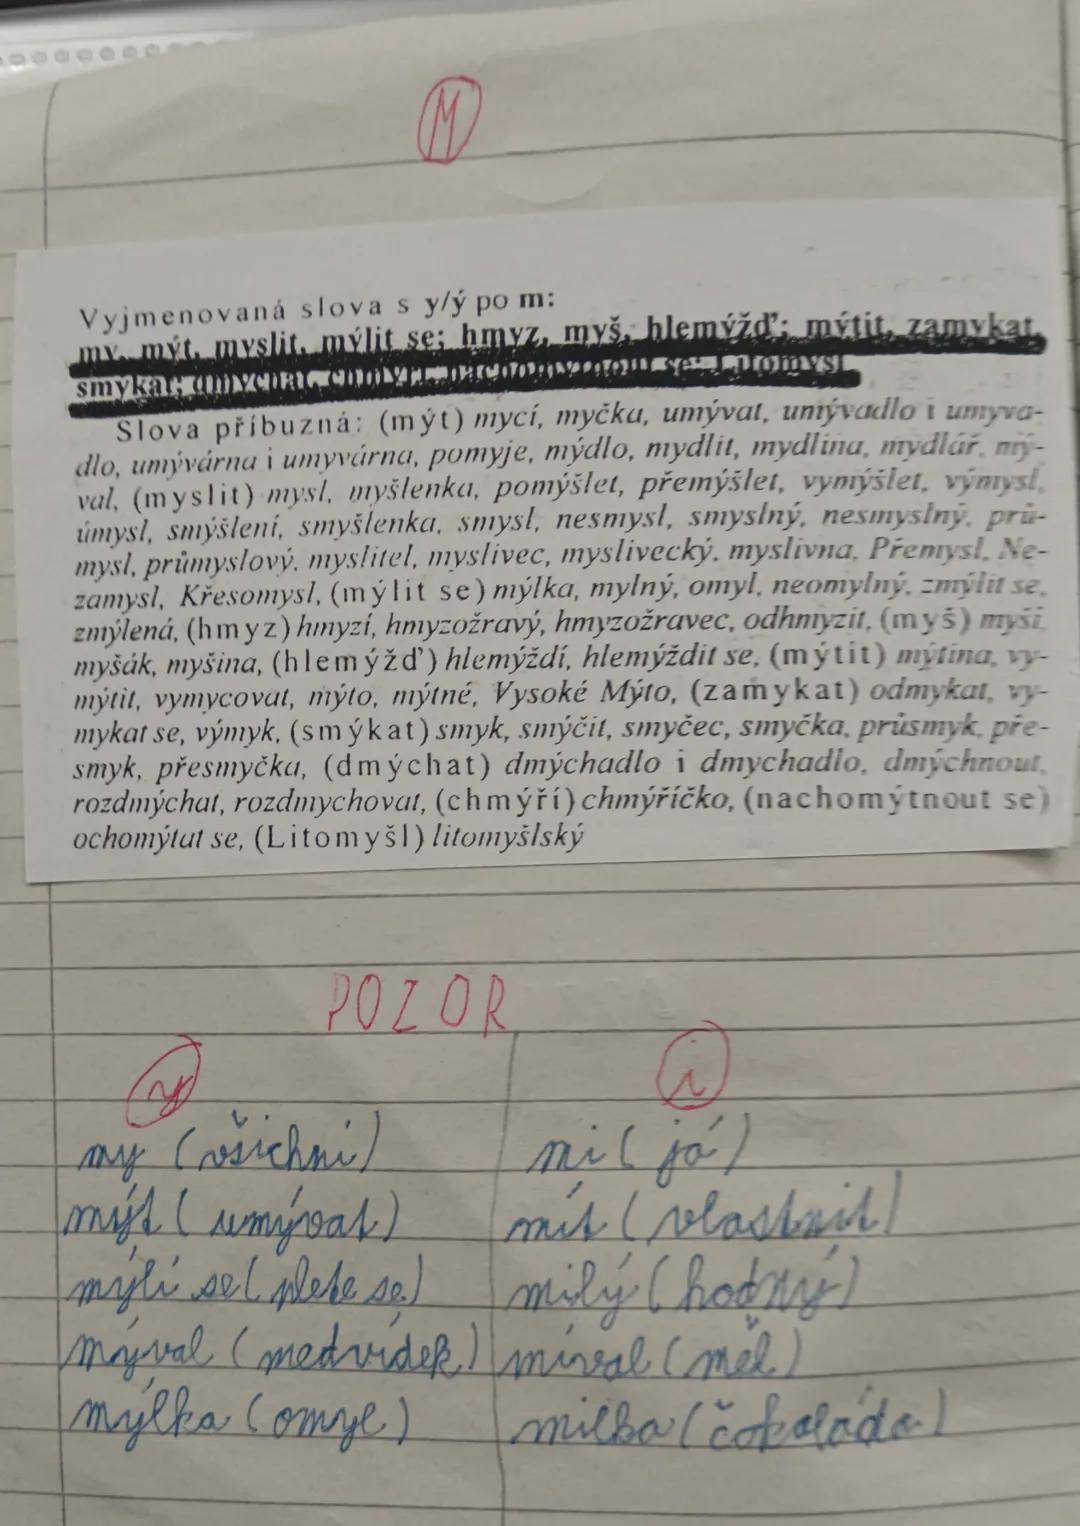 M
Vyjmenovaná slova s y/ý po m:
my, mýt, myslit, mýlit se; hmyz, myš, hlemýžď; mýtit, zamykat,
smýkat; dmýchat, chmýří, nachomýtnout se; Litomyšl
Slova příbuzná: (mýt) mycí, myčka, umývat, umývadlo i umyva-
dlo, umývárna i umyvárna, pomyje, mýdlo, mydlit, mydlina, mydlář, mý-
val, (myslit) mysl, myšlenka, pomýšlet, přemýšlet, vymýšlet, výmysl,
úmysl, smýšlení, smyšlenka, smysl, nesmysl, smyslný, nesmyslný, prů-
mysl, průmyslový, myslitel, myslivec, myslivecký, myslivna, Přemysl, Ne-
zamysl, Křesomysl, (mýlit se) mýlka, mylný, omyl, neomylný, zmýlit se,
zmýlená, (hmyz) hmyzí, hmyzožravý, hmyzožravec, odhmyzit, (myš) myší,
myšák, myšina, (hlemýžď) hlemýždí, hlemýždit se, (mýtit) mýtina, vy-
mýtit, vymycovat, mýto, mýtné, Vysoké Mýto, (zamykat) odmykat, vy-
mykat se, výmyk, (smýkat) smyk, smýčit, smyčec, smyčka, průsmyk, pře-
smyk, přesmyčka, (dmýchat) dmýchadlo i dmychadlo, dmýchnout,
rozdmýchat, rozdmychovat, (chmýří) chmýříčko, (nachomýtnout se)
ochomýtat se, (Litomyšl) litomyšlský
POZOR
y i
my (všichni) mi (já)
mýt (umývat) mít (vlastnit)
mýlí se (plete se) milý (hodný)
mýval (medvídek) míval (měl)
mýlka (omyl) milka (čokoláda)